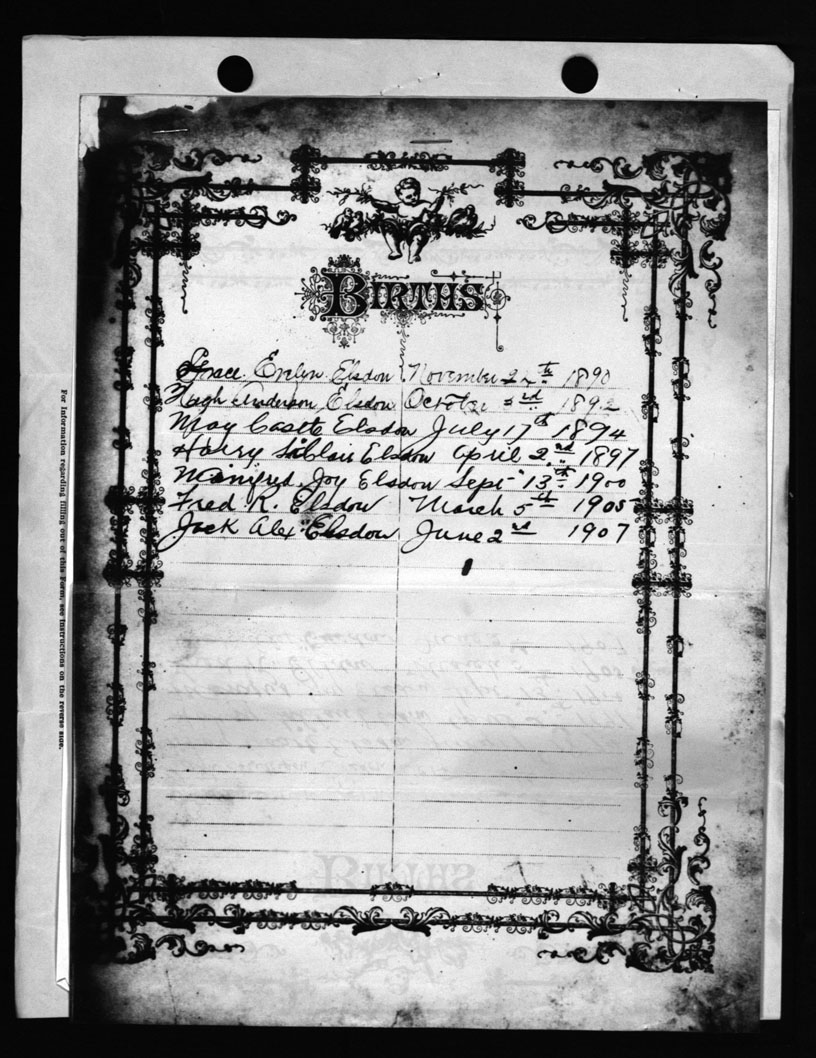 BIRTHS
Grace Evelyn Elsdon November 24th 1890
Hugh Anderson Elsdon October 3rd 1892
May Castle Elsdon July 17th 1894
Harry Elsdon April 2nd 1897
Winifred Joy Elsdon Sept 13th 1900
Fred R. Elsdon March 5th 1905
Jack Alex Elsdon June 2nd 1907
For Information regarding filling out of this Form, see Instructions on the reverse side.